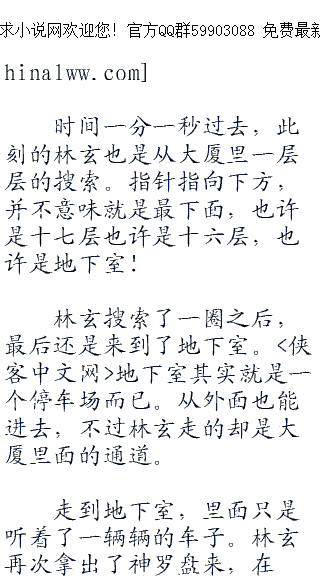 求小说网欢迎您！官方QQ群59903088 免费最新
hina1ww.com]
时间一分一秒过去，此
刻的林玄也是从大厦里一层
层的搜索。指针指向下方，
并不意味就是最下面，也许
是十七层也许是十六层，也
许是地下室！
林玄搜索了一圈之后，
最后还是来到了地下室。<侠
客中文网>地下室其实就是一
个停车场而已。从外面也能
进去，不过林玄走的却是大
厦里面的通道。
走到地下室，里面只是
听着了一辆辆的车子。林玄
再次拿出了神罗盘来，在